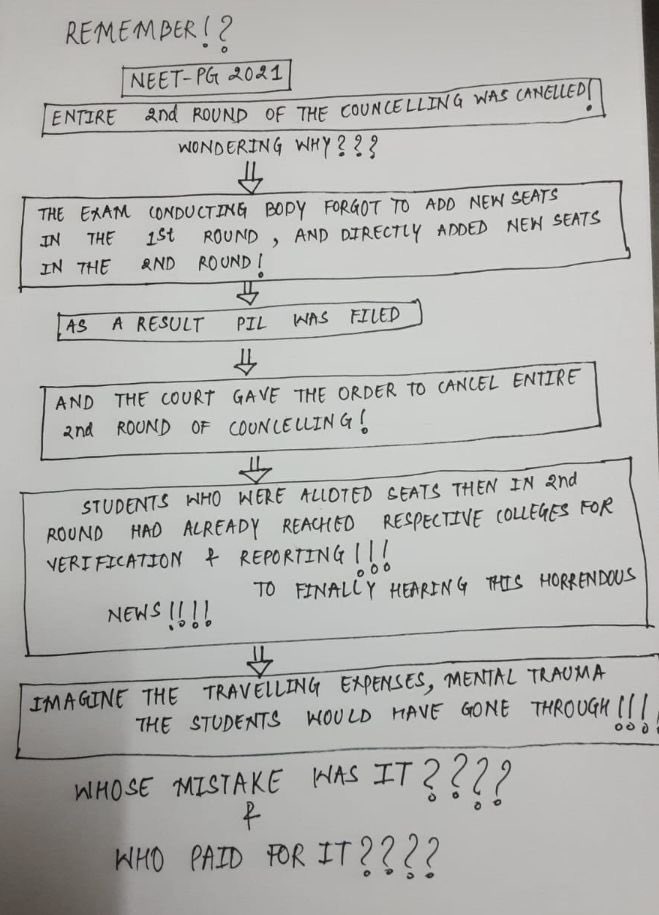 REMEMBER!?
NEET-PG 2021
ENTIRE 2nd ROUND OF THE COUNCELLING WAS CANELLED!
WONDERING WHY???
THE EXAM CONDUCTING BODY FORGOT TO ADD NEW SEATS
IN THE 1St ROUND, AND DIRECTLY ADDED NEW SEATS
IN THE 2ND ROUND!
AS A RESULT PIL WAS FILED
AND THE COURT GAVE THE ORDER TO CANCEL ENTIRE
2nd ROUND OF COUNCELLING!
STUDENTS WHO WERE ALLOTED SEATS THEN IN 2nd
ROUND HAD ALREADY REACHED RESPECTIVE COLLEGES FOR
VERIFICATION & REPORTING!!!
TO FINALLY HEARING THIS HORRENDOUS
NEWS!!!!
IMAGINE THE TRAVELLING EXPENSES, MENTAL TRAUMA
THE STUDENTS WOULD HAVE GONE THROUGH!!!!
WHOSE MISTAKE WAS IT????
&
WHO PAID FOR IT????